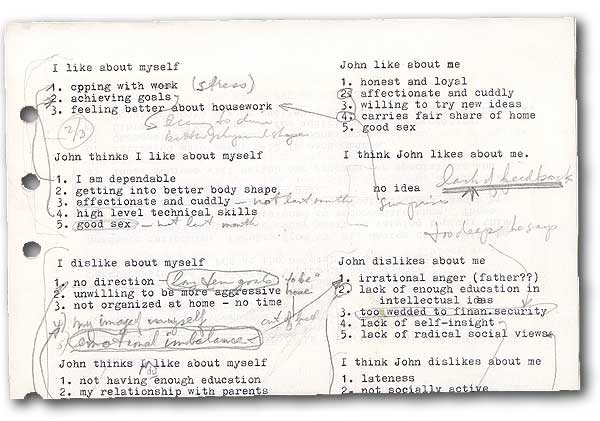 I like about myself
1. cpping with work (stress)
2. achieving goals
3. feeling better about housework
2/3
John thinks I like about myself
1. I am dependable
2. getting into better body shape
3. affectionate and cuddly - not last month
4. high level technical skills
5. good sex - not last month
I dislike about myself
1. no direction - long term goals "to be"
2. unwilling to be more aggressive
3. not organized at home - no time
4) my image myself
5) emotional imbalance
John thinks I like about myself
dis
1. not having enough education
2. my relationship with parents
John like about me
1. honest and loyal
2. affectionate and cuddly
3. willing to try new ideas
4. carries fair share of home
5. good sex
I think John likes about me.
no idea lack of feedback
surprise
too deep, he says
John dislikes about me
1. irrational anger (father??)
2. lack of enough education in
intellectual ideas
3. too wedded to finan. security
4. lack of self-insight
5. lack of radical social views
I think John dislikes about me
1. lateness
2. not socially active